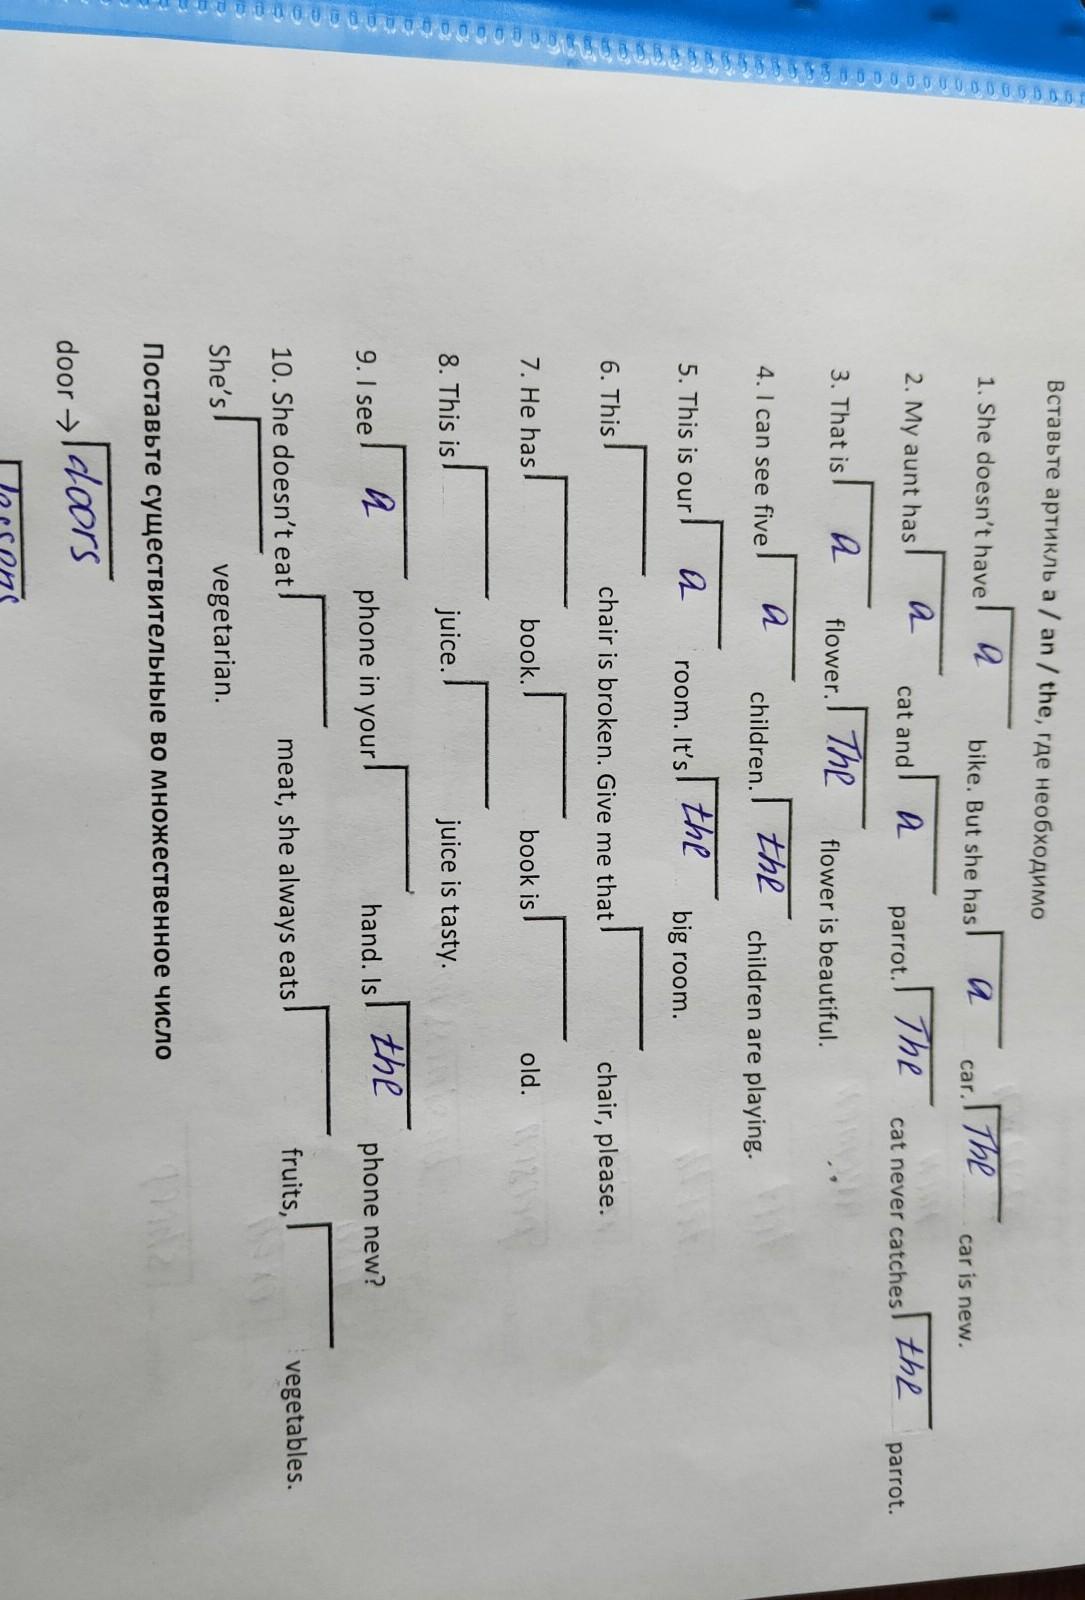 Вставьте артикль a / an / the, где необходимо
1. She doesn't have a bike. But she has a car. The car is new.
2. My aunt has a cat and a parrot. The cat never catches the parrot.
3. That is a flower. The flower is beautiful.
4. I can see five a children. the children are playing.
5. This is our a room. It's the big room.
6. This chair is broken. Give me that chair, please.
7. He has book. book is old.
8. This is juice. juice is tasty.
9. I see a phone in your hand. Is the phone new?
10. She doesn't eat meat, she always eats fruits, vegetables.
She's vegetarian.
Поставьте существительные во множественное число
door → doors